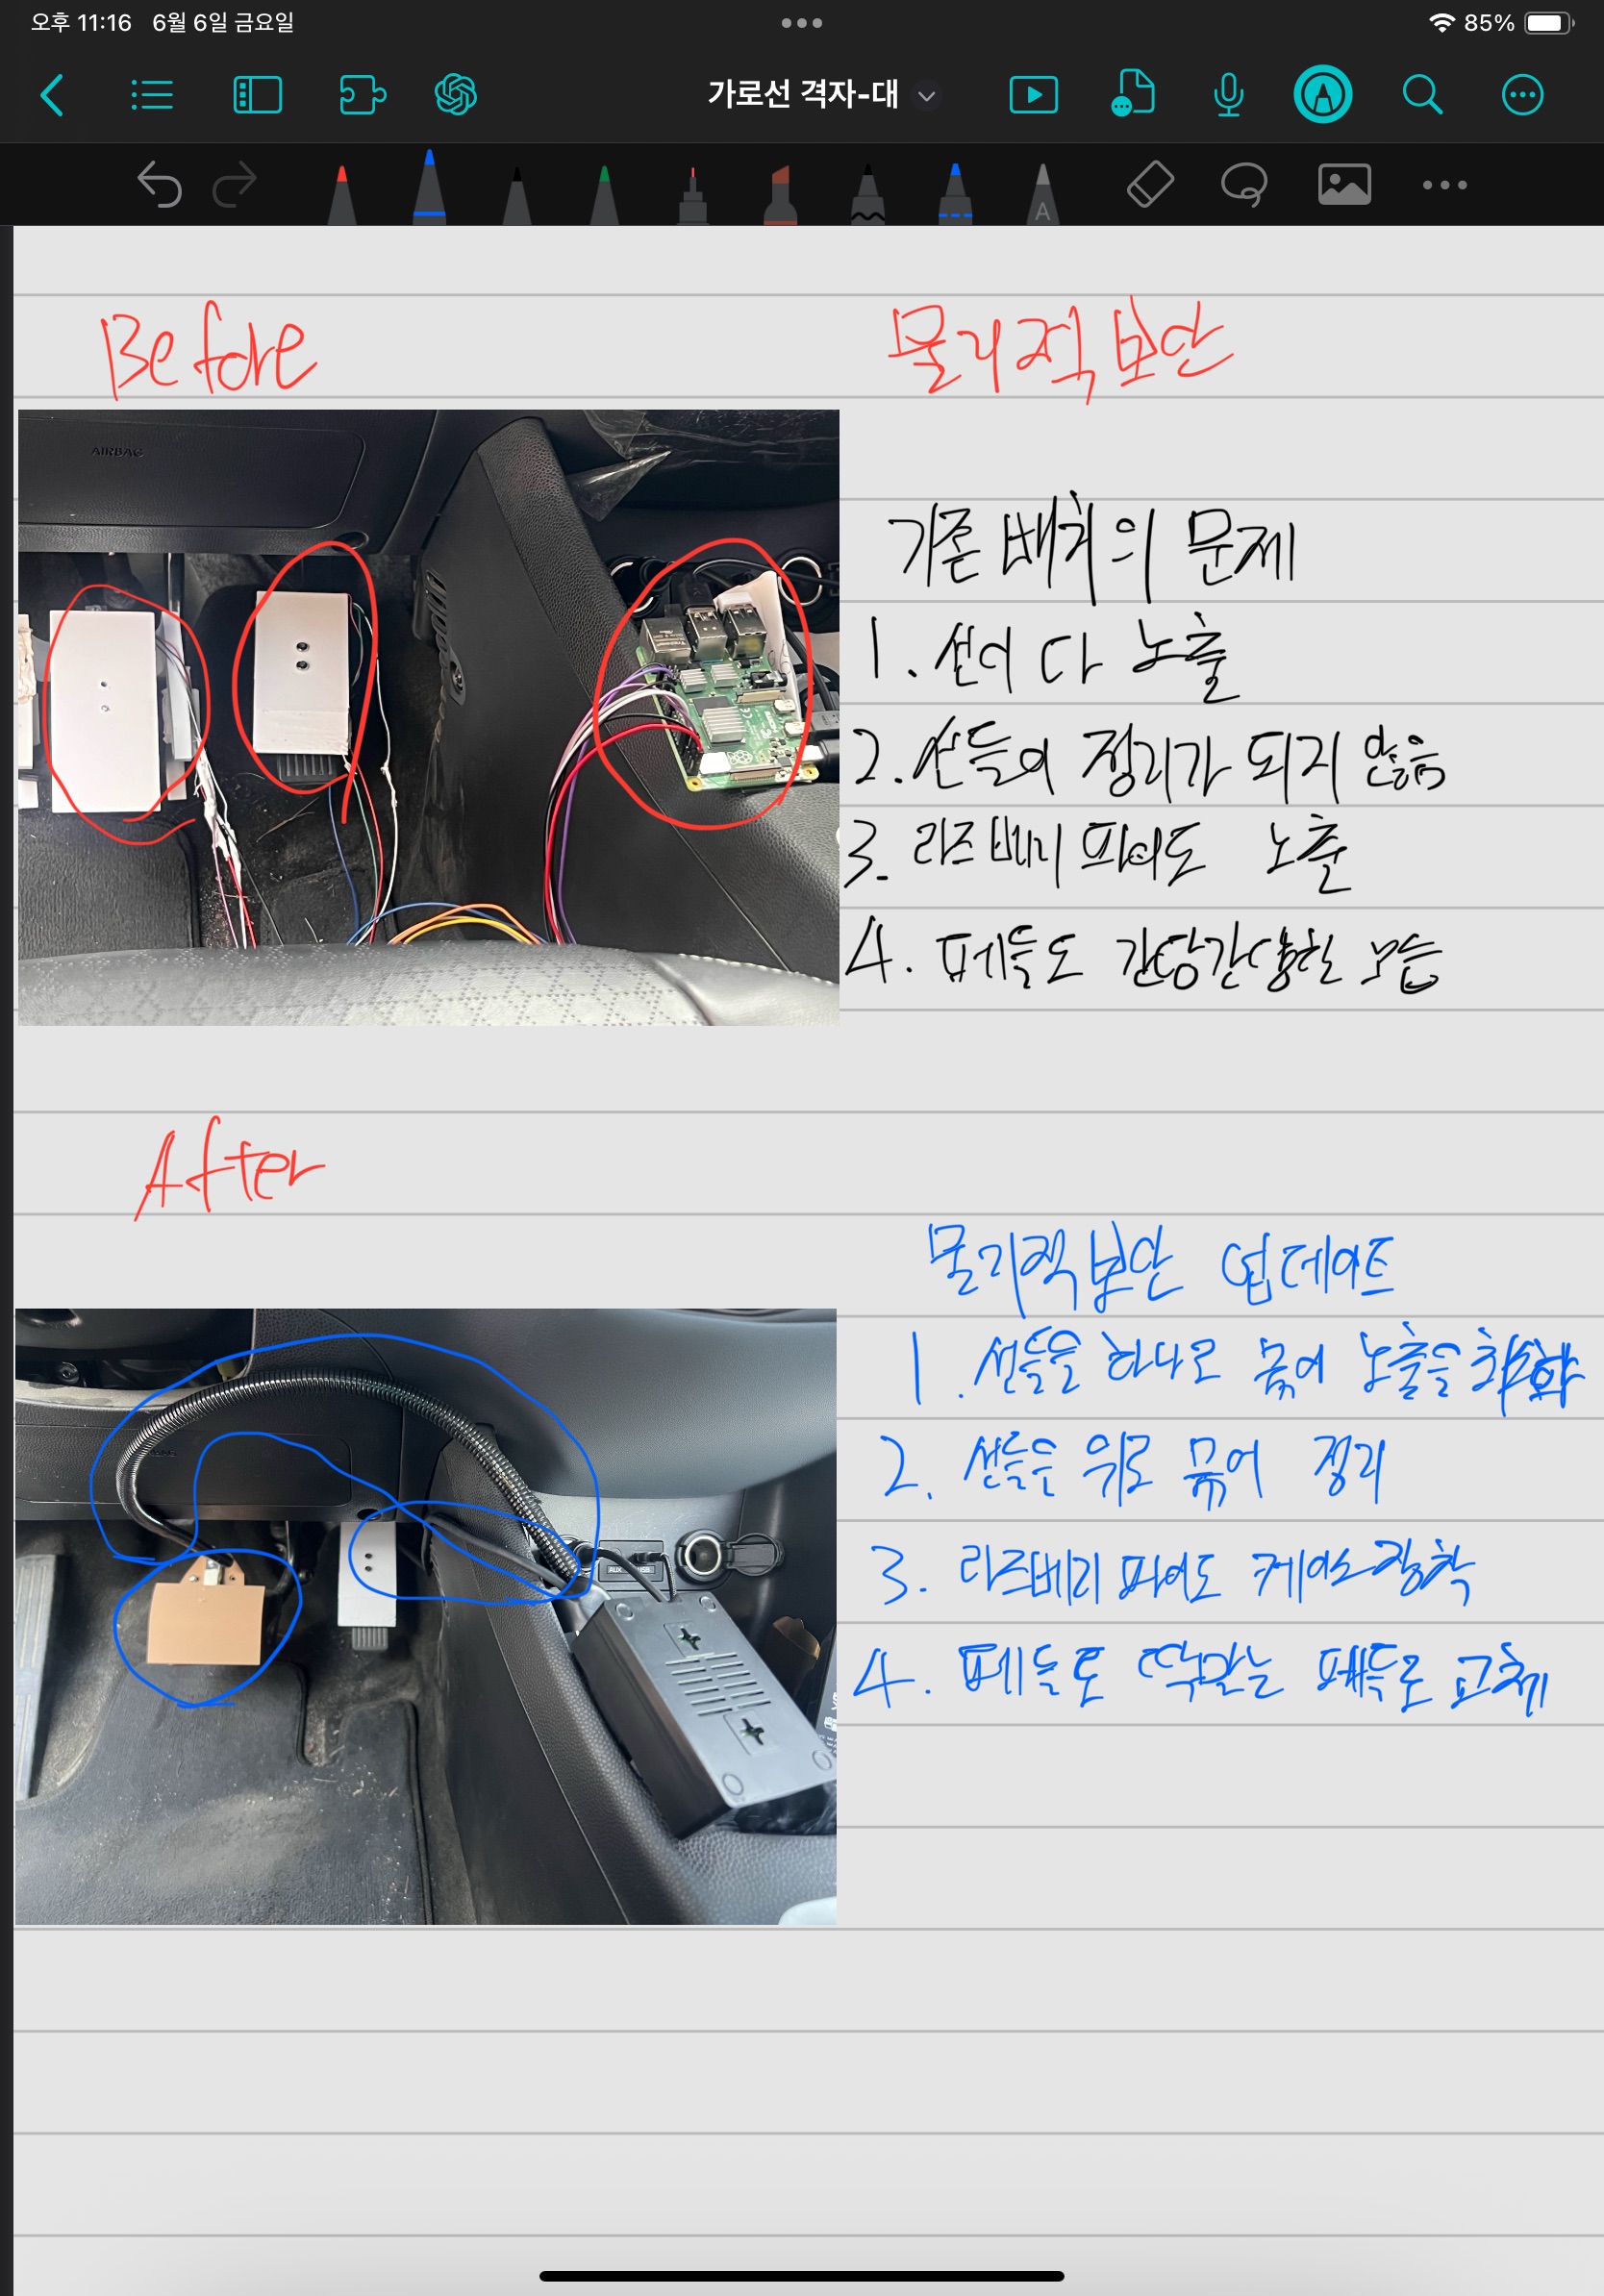 오후 11:16 6월 6일 금요일
85%
가로선 격자-대
A
Before
물리적 보안
AIRBAG
기존 배치의 문제
1. 선이 다 노출
2. 선들의 정리가 되지 않음
3. 라즈베리 파이도 노출
4. 페들도 간당간당한 모습
After
물리적 보안 업데이트
1. 선들을 하나로 묶어 노출을 최소화
2. 선들을 위로 묶어 정리
3. 라즈베리 파이도 케이스 장착
4. 페들도 딱맞는 페들로 교체
AUX